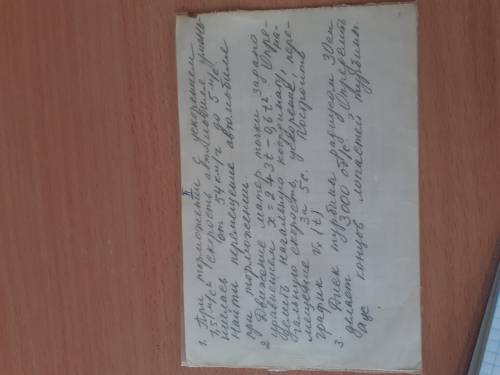 II
1. При торможении с ускорением
1,5 м/с² скорость автомобиля умень-
шилась от 54 км/ч до 5 м/с.
Найти перемещение автомобиля
при торможении.
2 Движение матер точки задано
уравнением x = 2+3t-0,6t². Опре-
делить начальную координату, на-
чальную скорость, ускорение, пере-
мещение за 5с. Построить
график vₓ(t)
3 Диск турбины радиусом 30см
делает 3000 об/с. Определить
aцс концов лопастей турбины.